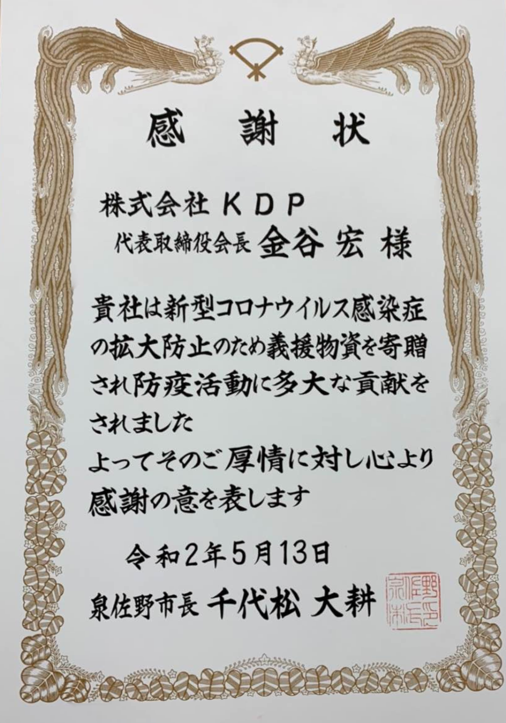 感謝状
株式会社KDP
代表取締役会長 金谷 宏 様
貴社は新型コロナウイルス感染症
の拡大防止のため義援物資を寄贈
され防疫活動に多大な貢献を
されました
よってそのご厚情に対し心より
感謝の意を表します
令和2年5月13日
泉佐野市長 千代松 大耕